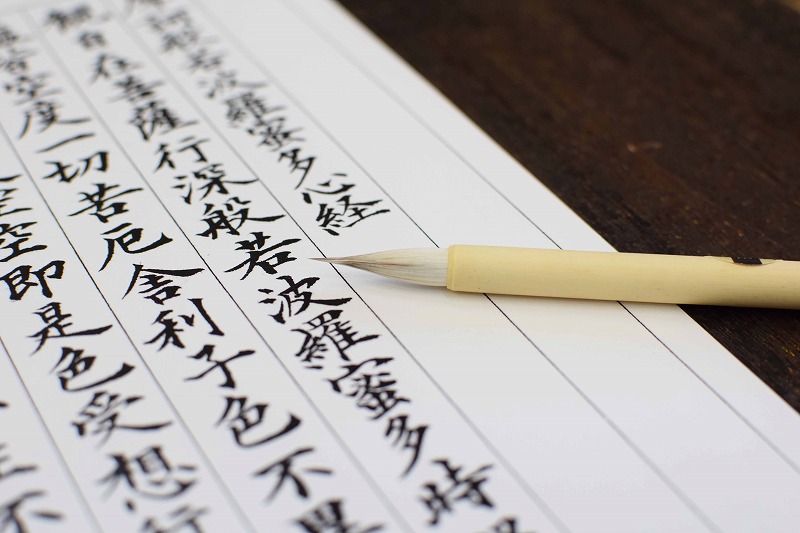 訶般若波羅蜜多心経
観自在菩薩行深般若波羅蜜多時
皆空度一切苦厄舎利子色不異
空空即是色受想行
不